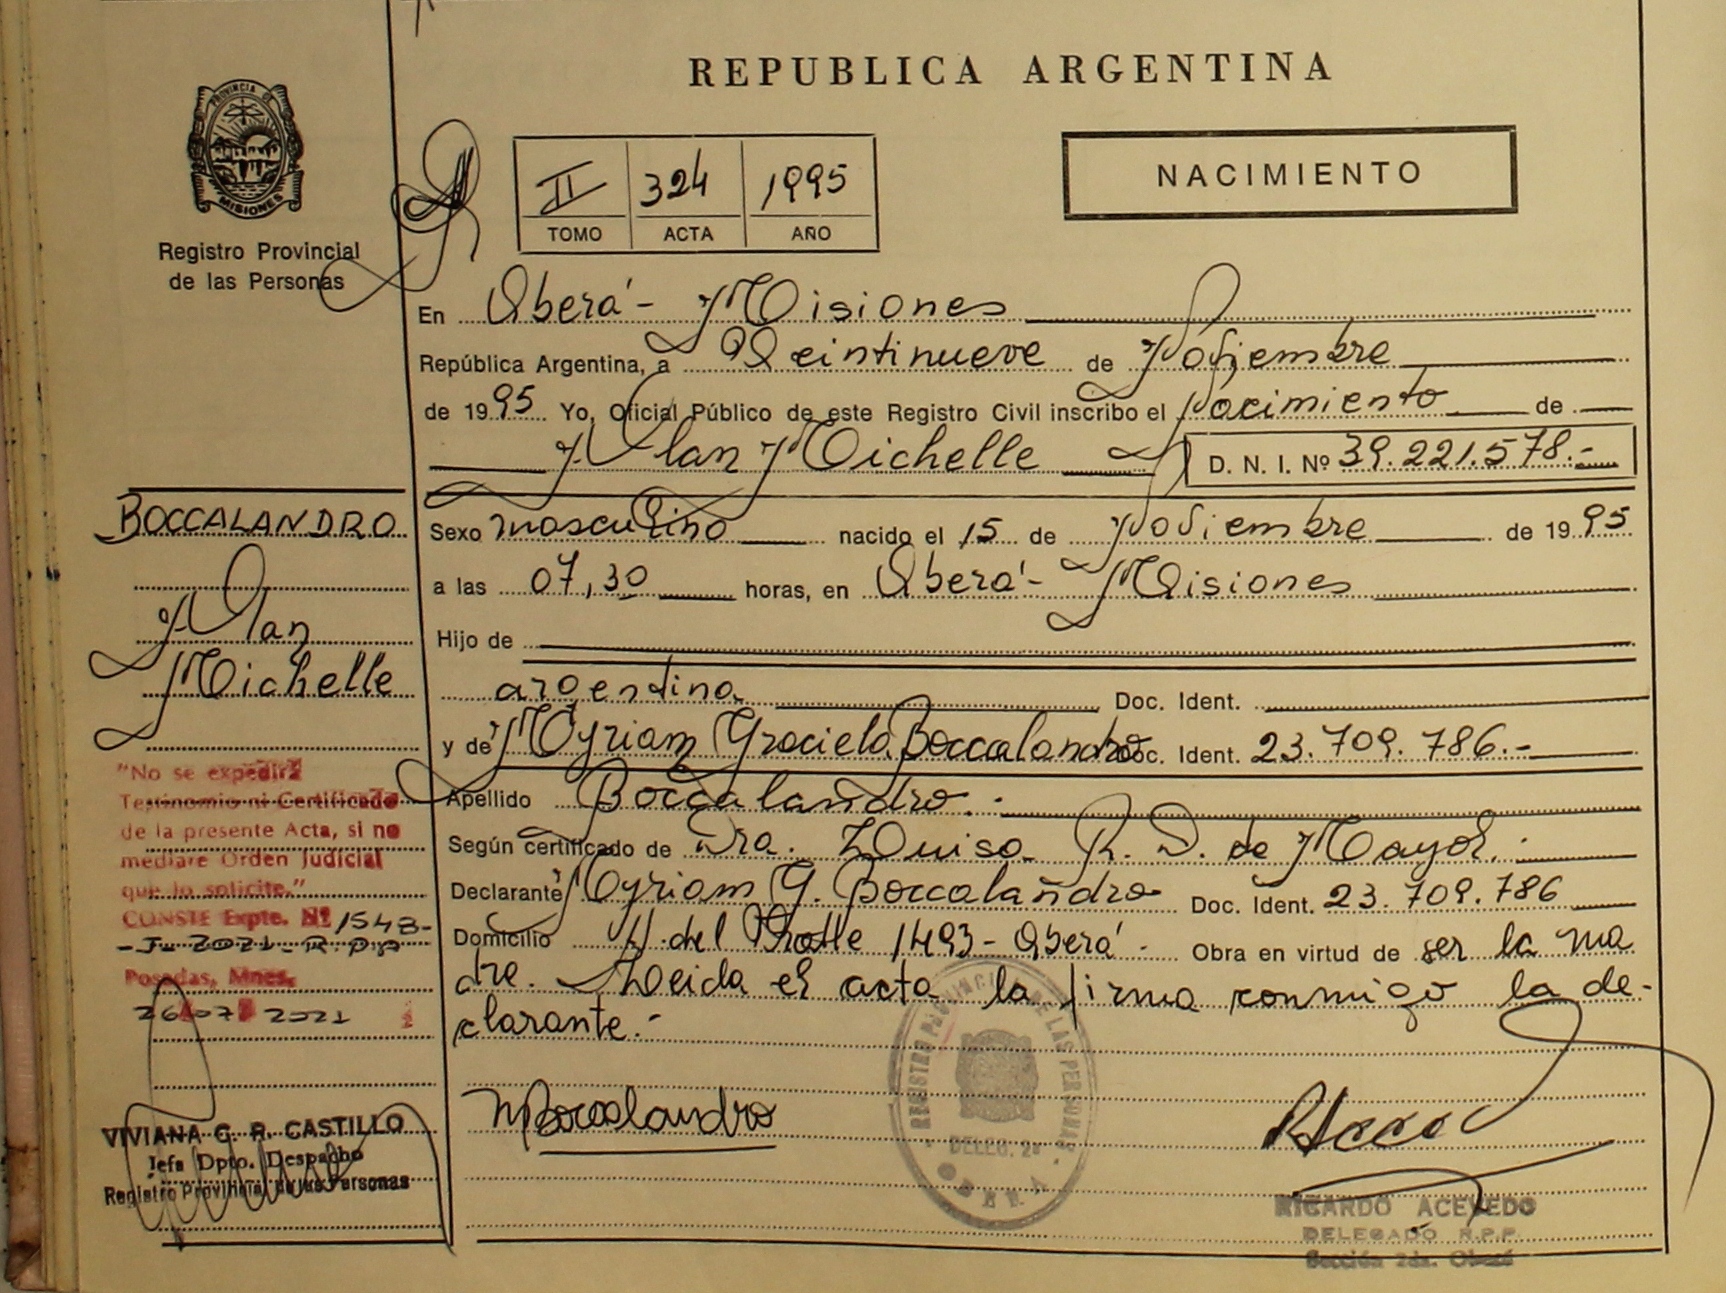 REPUBLICA ARGENTINA
PROVINCIA DE
MISIONES
Registro Provincial
de las Personas
II 324 1995
TOMO ACTA AÑO
NACIMIENTO
En Oberá - Misiones
República Argentina, a Veintinueve de Noviembre
de 1995 Yo, Oficial Público de este Registro Civil inscribo el Nacimiento de
Alan Michelle D. N. I. Nº 39.221.578.-
BOCCALANDRO
Alan
Michelle
Sexo masculino nacido el 15 de Noviembre de 1995
a las 07,30 horas, en Oberá - Misiones
Hijo de
argentina Doc. Ident.
y de Myriam Graciela Boccalandro Doc. Ident. 23.709.786.-
Apellido Boccalandro.-
Según certificado de Dra. Luisa R. D. de Mayol.-
Declarante Myriam G. Boccalandro Doc. Ident. 23.709.786
Domicilio 1493 - Oberá - Obra en virtud de ser la ma
dre. Leida el acta la firma conmigo la de-
clarante.-
"No se expedirá
Testimonio ni Certificado
de la presente Acta, si no
mediare Orden Judicial
que lo solicite."
CONSTE Expte. Nº 1548-
-J-2021-R.P.P
Posadas, Mnes,
26 07 2021
VIVIANA G. R. CASTILLO
Jefa Dpto. Despacho
Registro Provincial de las Personas
MBoccalandro
REGISTRO PROVINCIAL DE LAS PERSONAS
DELEG. 2ª
OBERA
RICARDO ACEVEDO
DELEGADO R.P.P.
Sección 2da. Oberá